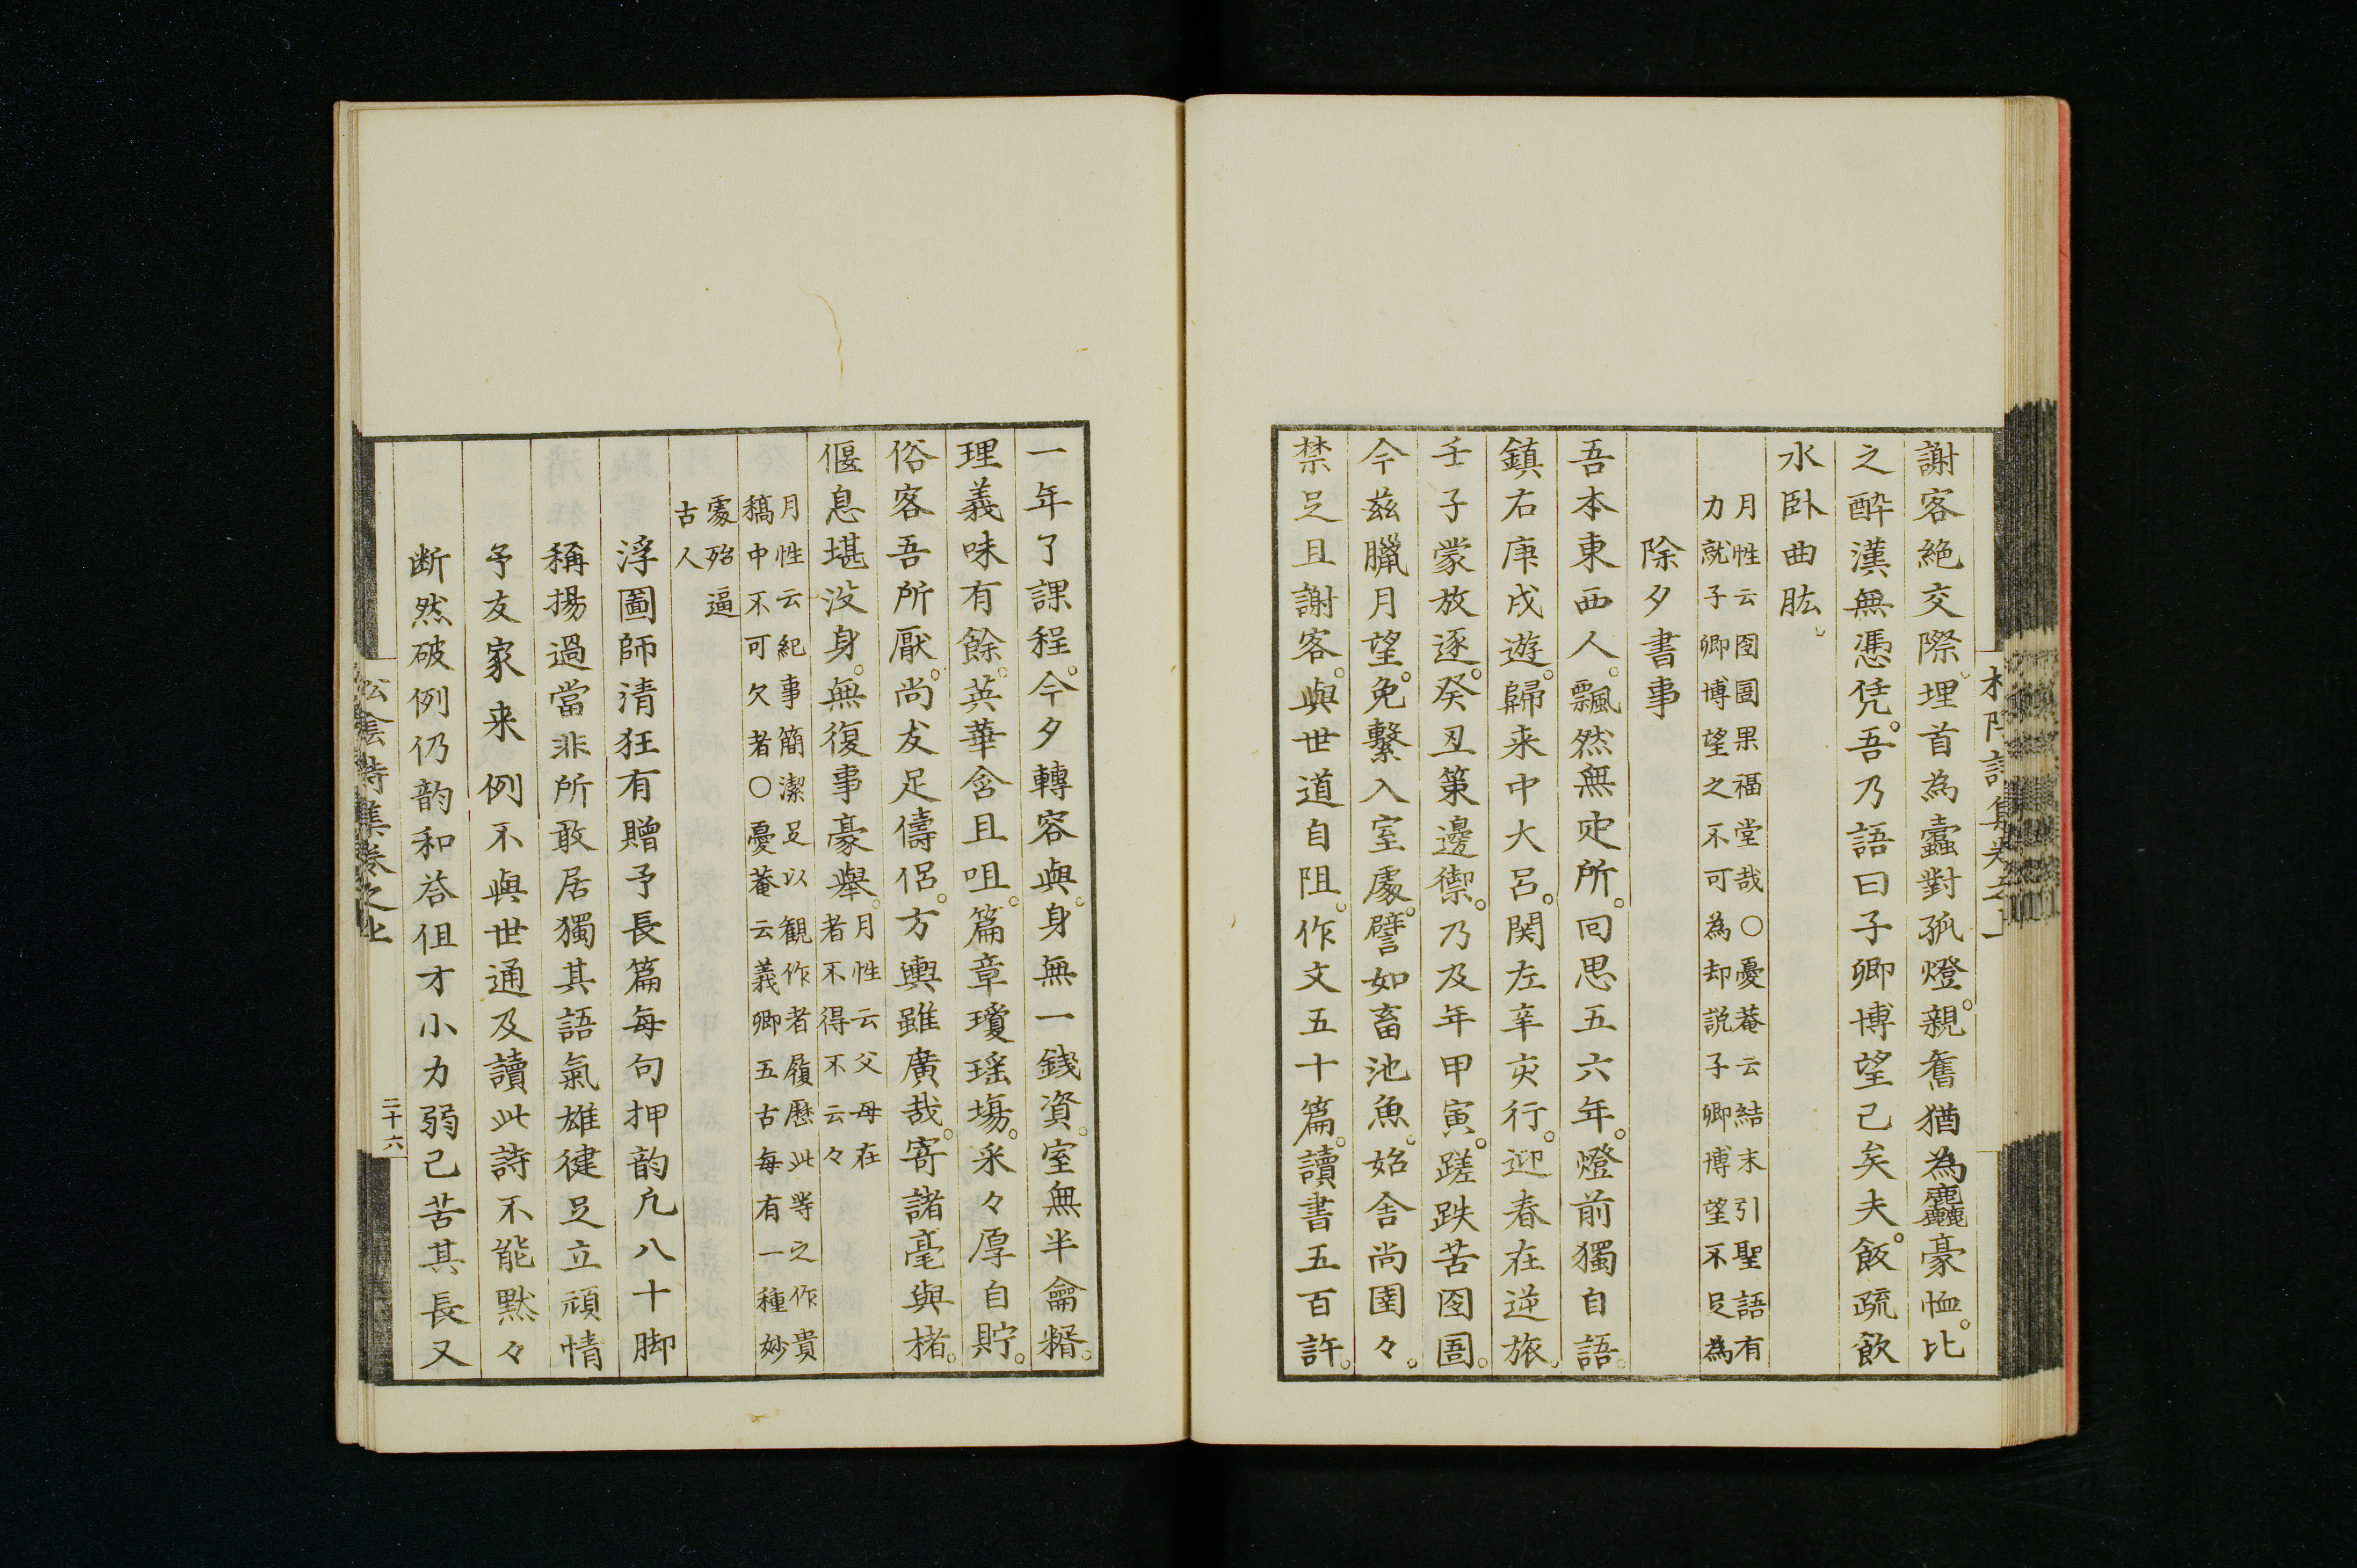 謝客絶交際埋首為蠹對孤燈親舊猶為麤豪恤比
之酔漢無憑凭吾乃語曰子卿博望己矣夫飯疏飲
水臥曲肱
月性云囹圄果福堂哉○憂菴云結末引聖語有
力就子卿博望之不可為却説子卿博望不足為
除夕書事
吾本東西人飄然無定所回思五六年燈前獨自語
鎮右庚戌遊歸来中大呂関左辛亥行迎春在逆旅
壬子蒙放逐癸丑策邊禦乃及年甲寅蹉跌苦囹圄
今茲臘月望免繫入室處譬如畜池魚始舎尚圉々
禁足且謝客與世道自阻作文五十篇讀書五百許
一年了課程今夕轉容與身無一錢資室無半龠糈
理義味有餘英華含且咀篇章瓊瑶塲采々厚自貯
俗客吾所厭尚友足儔侶方輿雖廣哉寄諸毫與楮
偃息堪沒身無復事豪舉
月性云父母在
者不得不云々
月性云紀事簡潔足以観作者履歴此等之作貴
稿中不可欠者○憂菴云義卿五古毎有一種妙
處殆逼
古人
浮圖師清狂有贈予長篇毎句押韵凡八十脚
稱揚過當非所敢居獨其語氣雄健足立頑情
予友家来例不與世通及讀此詩不能黙々
断然破例仍韵和荅但才小力弱己苦其長又
松陰詩集卷之上
二十六